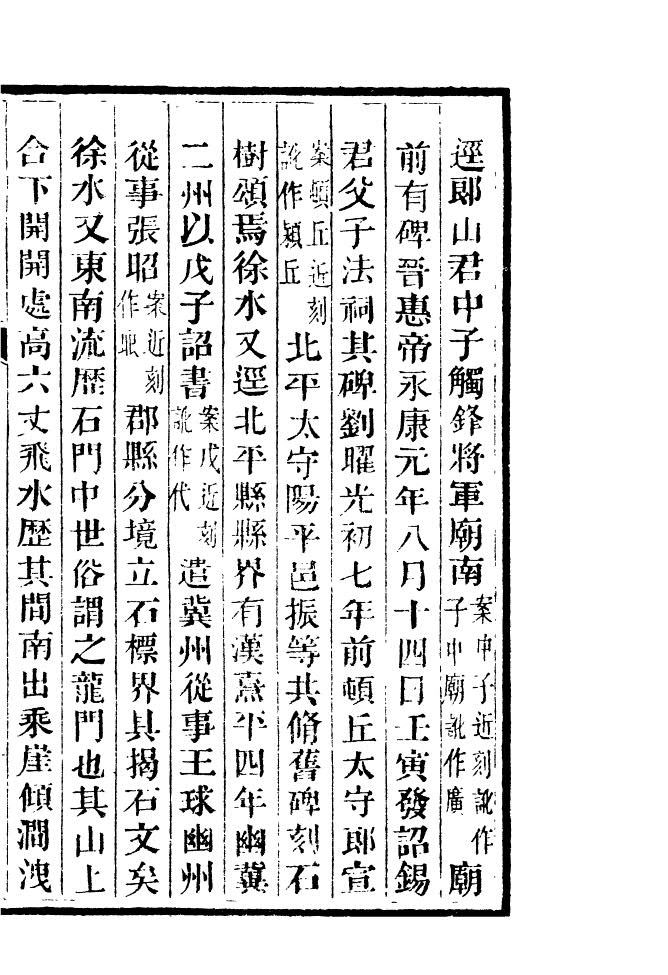 逕郎山君中子觸鋒將軍廟南案中子近刻訛作子中廟訛作廣廟
前有碑晉惠帝永康元年八月十四日壬寅發詔錫
君父子法祠其碑劉曜光初七年前頓丘太守郎宣
案頓丘近刻訛作潁丘北平太守陽平邑振等共脩舊碑刻石
樹頌焉徐水又逕北平縣縣界有漢熹平四年幽冀
二州以戊子詔書案戊近刻訛作代遣冀州從事王球幽州
從事張昭案近刻作耴郡縣分境立石標界具揭石文矣
徐水又東南流歷石門中世俗謂之龍門也其山上
合下開開處高六丈飛水歷其間南出乘崖傾澗洩